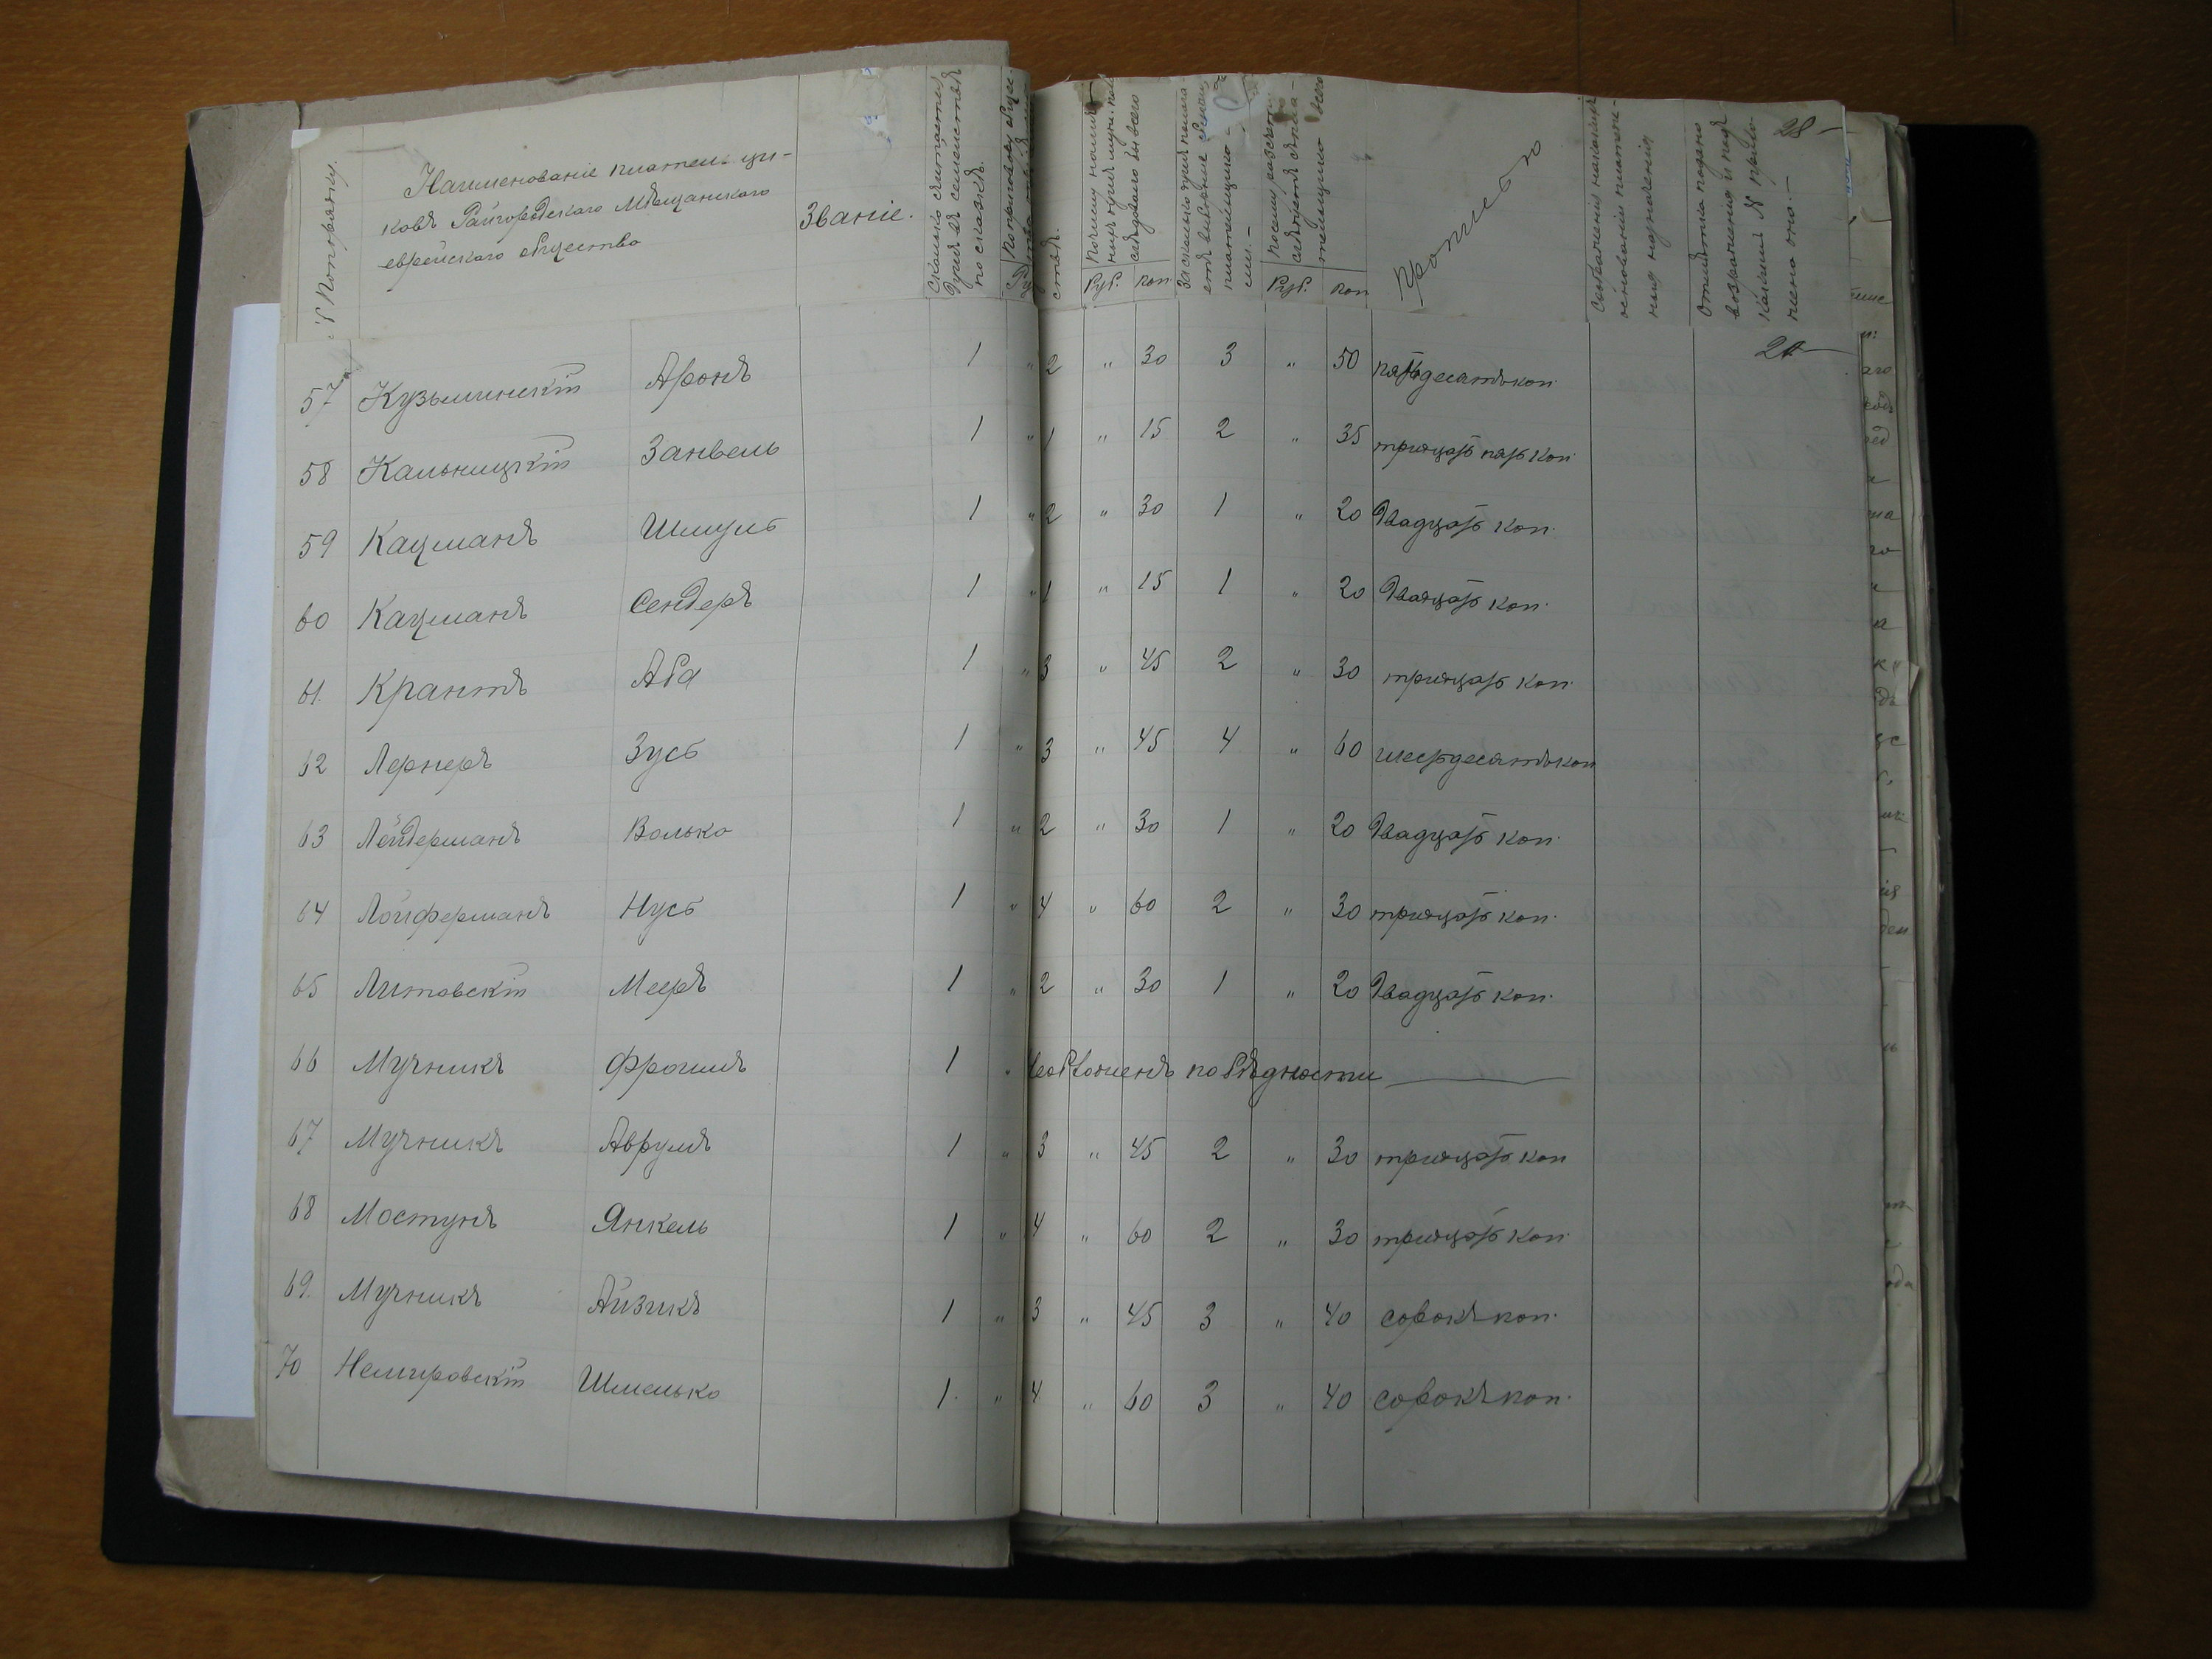 № По порядку.
Наименованіе плательщи-
ковъ Райгородского Мѣщанского
еврейского общество
Званіе.
Сколько считается
душъ въ семействѣ
по сказкѣ.
По приговору обще-
ства
Почему
слѣдовало бы всего
Руб. коп
За сколько душъ полага
плательщико-
ми.-
Руб. коп
Прописью
основаніи
ныя назначенія
28-
Отмѣтка подано
возраженія и подъ
какимъ № прило-
жено оно.-
57 Кузьминскій Аронъ 1 " 2 " 30 3 " 50 пятьдесятъ коп. 24-
58 Кальницкій Занвель 1 " 1 " 15 2 " 35 тридцать пять коп.
59 Кацманъ Шмуль 1 " 2 " 30 1 " 20 Двадцать коп.
60 Кацманъ Сендеръ 1 " 1 " 15 1 " 20 Двадцать коп.
61. Крантъ Аба 1 " 3 " 45 2 " 30 тридцать коп.
62 Лернеръ Зусь 1 " 3 " 45 4 " 60 шестьдесятъ коп
63 Лейдерманъ Волько 1 " 2 " 30 1 " 20 Двадцать коп.
64 Лойферманъ Нусь 1 " 4 " 60 2 " 30 тридцать коп.
65 Литовскій Мееръ 1 " 2 " 30 1 " 20 Двадцать коп.
66 Мучникъ Фроимъ 1 " по бѣдности
67 Мучникъ Аврумъ 1 " 3 " 45 2 " 30 тридцать коп
68 Мостунъ Янкель 1 " 4 " 60 2 " 30 тридцать коп.
69. Мучникъ Айзикъ 1 " 3 " 45 3 " 40 сорокъ коп.
70 Немировскій Шмелько 1. " 4 " 60 3 " 40 сорокъ коп.